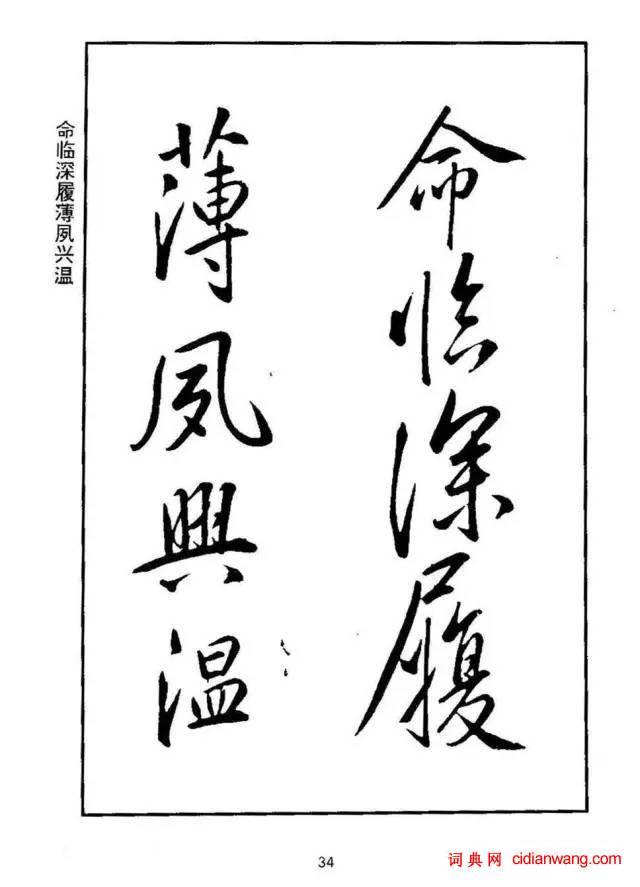 命临深履
薄夙興温
命临深履薄夙兴温
34
词典网 cidianwang.com